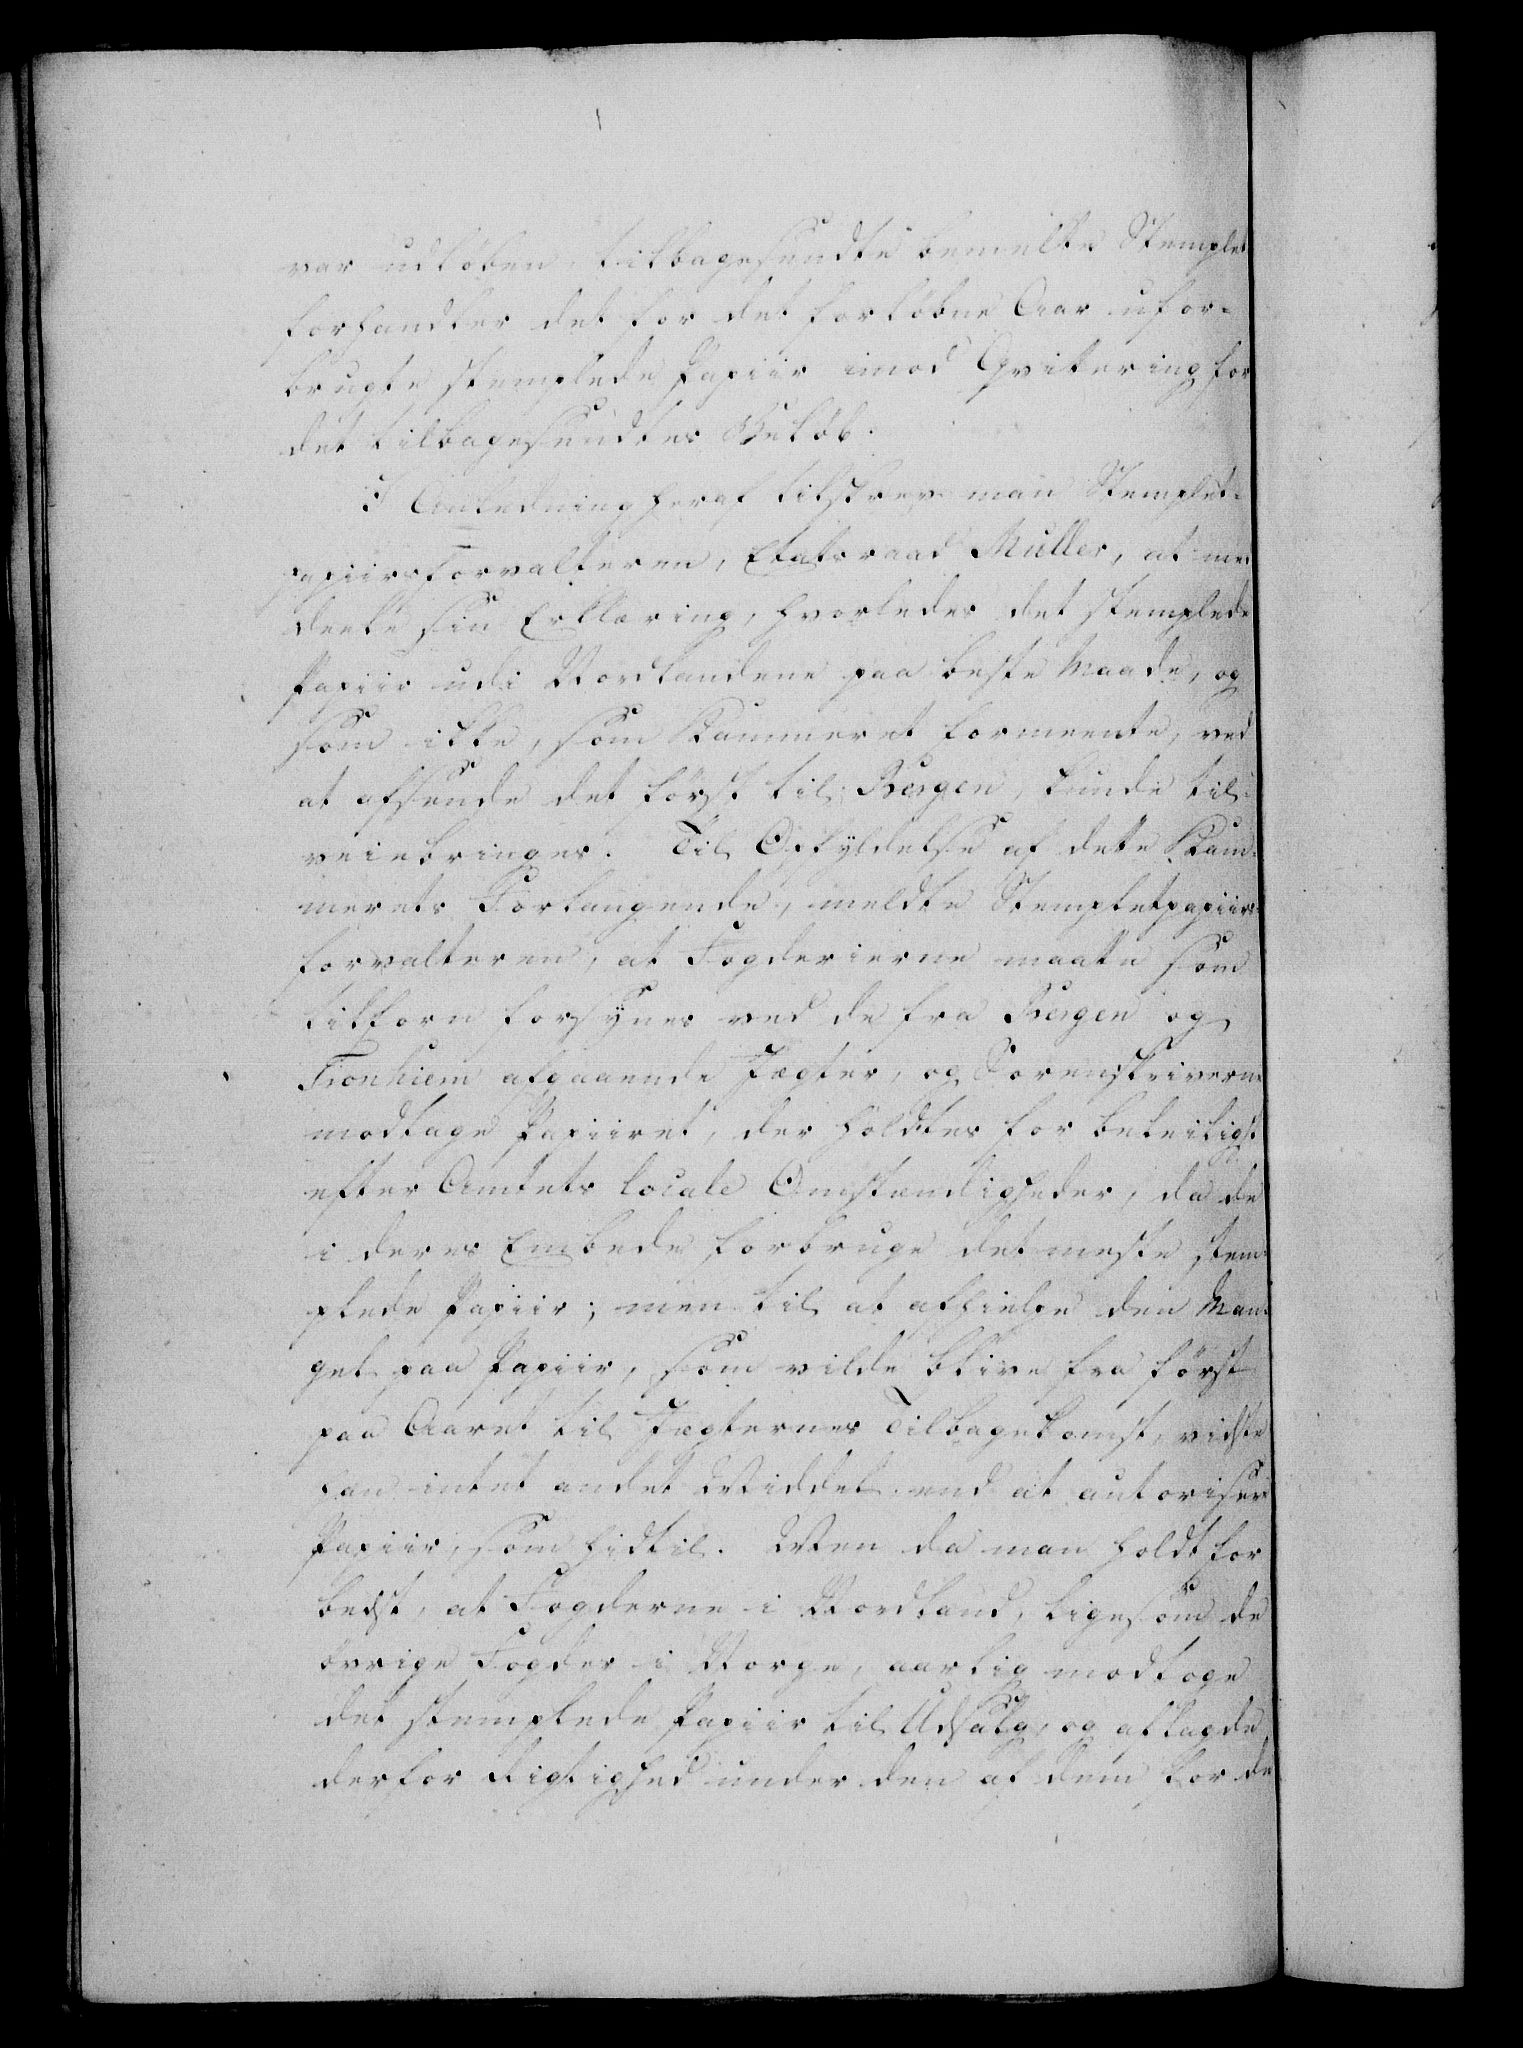 var udløben, tilbagesendte bemelte Stemplet
forhandler det for det forløbne Aar ufor-
brugte stemplede Papiir imod Qvitering for
det tilbagesendtes Beløb.
I Anledning heraf tilskrev man Stemplet-
papiirsforvalteren, Etatsraad Müller, at med
deele sin Erklæring, hvorledes det stemplede
Papiir udi Nordlandene paa beste Maade, og
som ikke, som Kammeret formeente, ved
at afsende det først til Bergen, kunde til-
veiebringes. Til Opfyldelse af dette Kam-
merets Forlangende, meldte Stempletpapiirs-
forvalteren, at Fogderierne maatte som
tilforn forsynes ved de fra Bergen og
Tronhiem afgaaende Jægter, og Sorenskriverne
modtage Papiiret, der holdtes for beleiligst
efter Amtets locale Omstændigheder, da de
i deres Embede forbruge det meste stem-
plede Papiir; men til at afhielpe den Man-
gel paa Papiir, som vilde blive fra først
paa Aaret til Jægternes Tilbagekomst, vidste
han intet andet Middel end at autorisere
Papiir, som hidtil. Men da man holdt for
bedst, at Fogderne i Nordland, ligesom de
øvrige Fogder i Norge, aarlig modtoge
det stemplede Papiir til Udsalg, og aflagde
derfor Rigtighed under den af dem for de